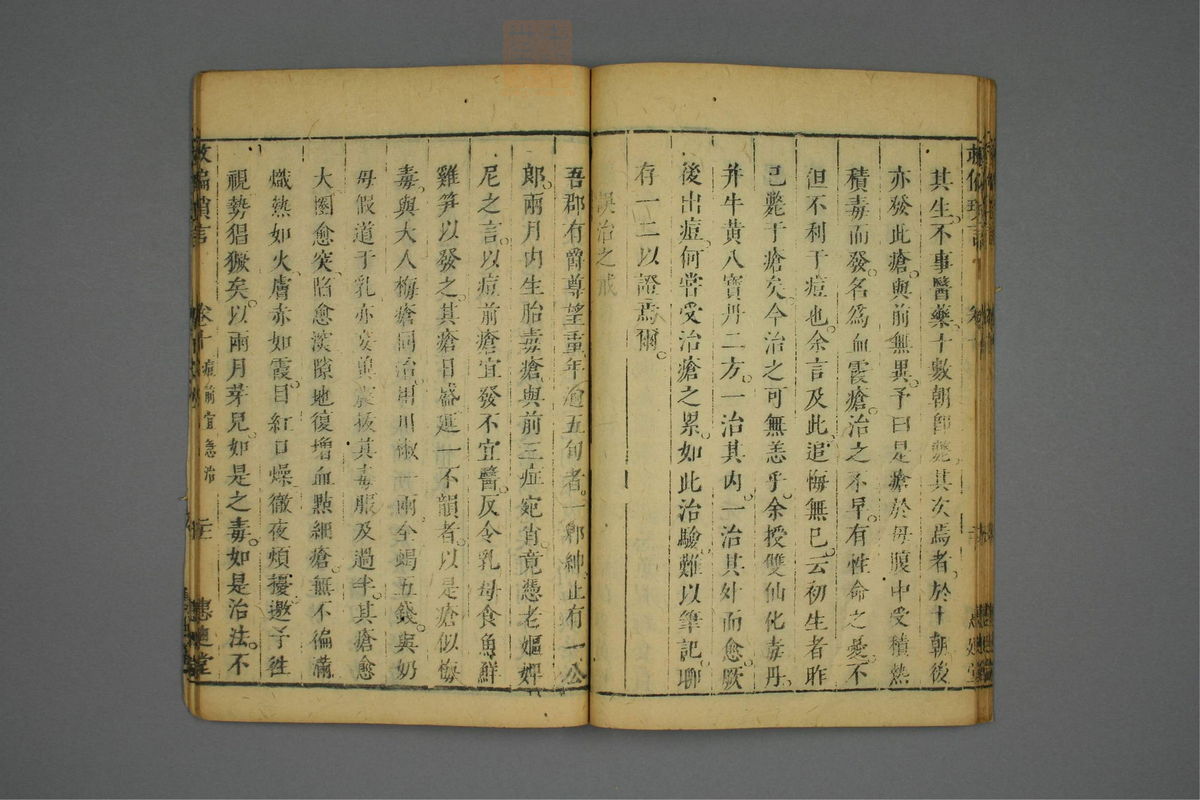 其生不事醫藥十數朝卽斃其次焉者於十朝後
亦發此瘡與前無異予曰是瘡於母腹中受積熱
積毒而發名爲血霞瘡治之不早有性命之憂不
但不利于痘也余言及此追悔無已云初生者昨
已斃于瘡矣今治之可無恙乎余授雙仙化毒丹
并牛黃八寶丹二方一治其内一治其外而愈厥
後出痘何嘗受治瘡之累如此治驗難以筆記聊
存一二以證焉爾
誤治之戒
吾郡有爵尊望重年逾五旬者一鄉紳止有一公
郎兩月内生胎毒瘡與前三症宛肖竟憑老嫗嬋
尼之言以痘前瘡宜發不宜醫反令乳母食魚鮮
雞笋以發之其瘡日盛延一不韻者以是瘡似梅
毒與大人梅瘡同治用川椒一兩全蝎五錢與奶
母假道于乳亦妄
其毒服及過半其瘡愈
大圈愈突陷愈深隙地復增血點細瘡無不徧滿
熾熱如火膚赤如霞目紅口燥徹夜煩擾邀予徃
視勢猖獗矣以兩月芽兒如是之毒如是治法不
救偏瑣言 卷十 痘前宜急治 惠迪堂